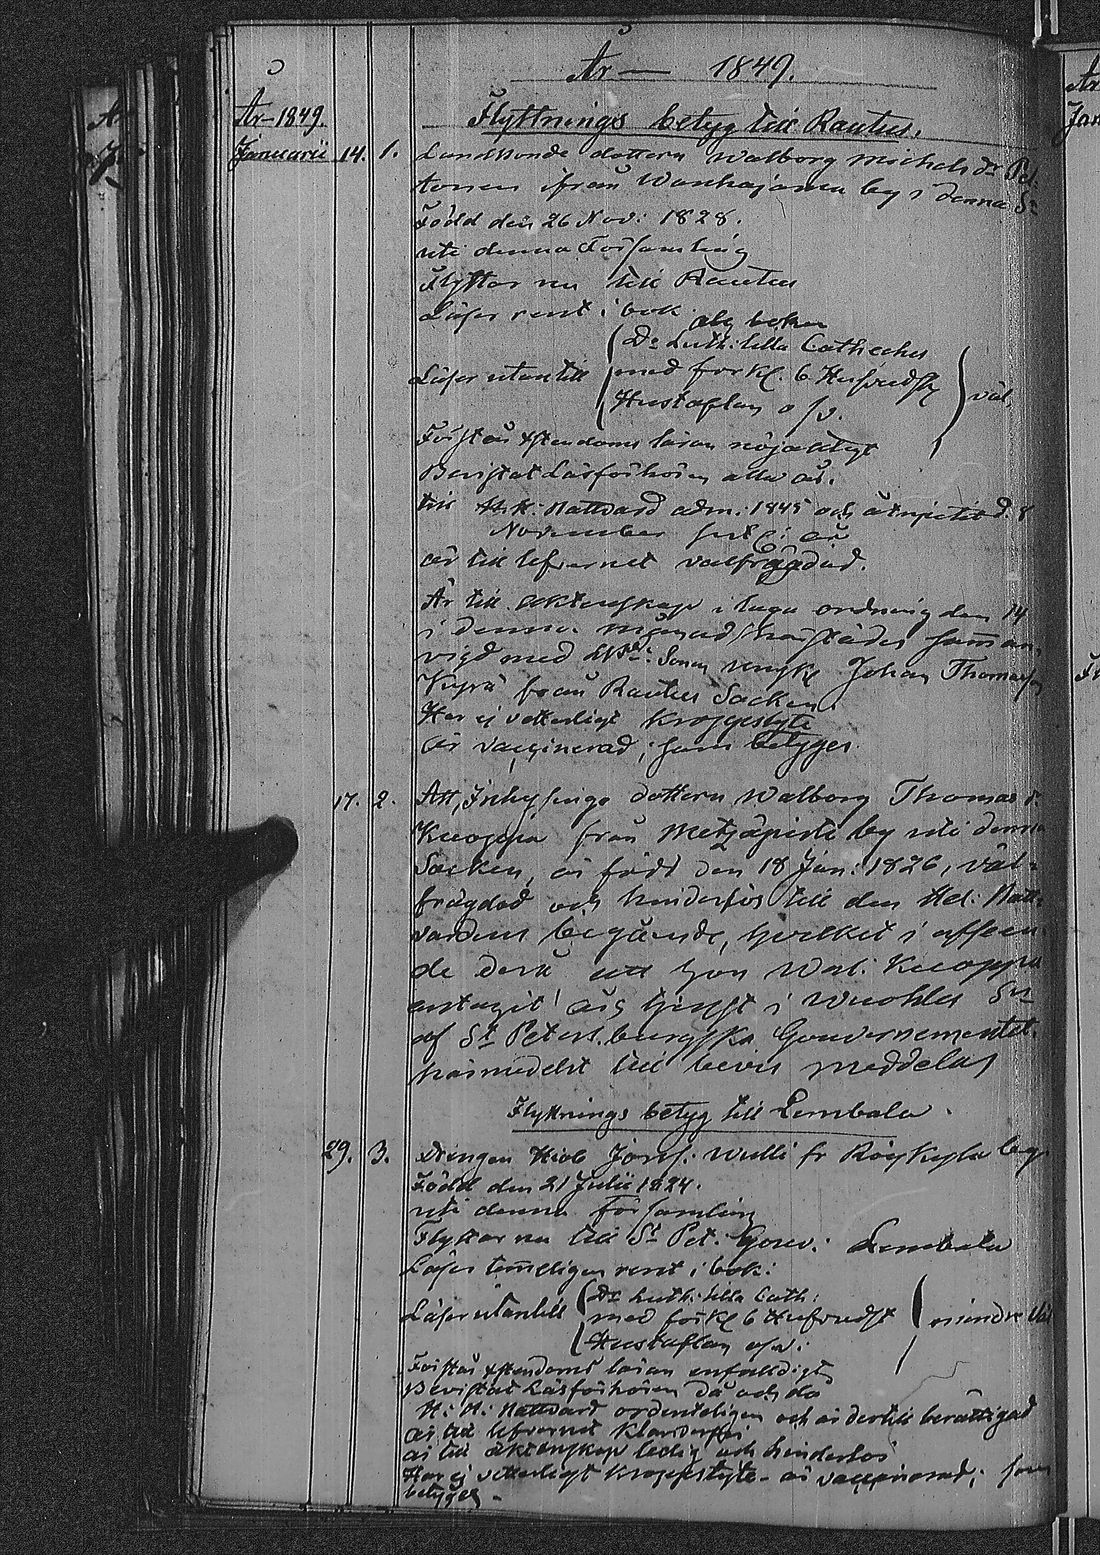 År — 1849.
År 1849.
Flyttnings betyg till Rautus.
Januarii 14. 1. Landbonde dottern Walborg Michelsdr
från Wanhajama by i denna Sn
Född den 26 Nov: 1828.
uti denna Församling
Flyttar nu till Rautus
Läser rent i bok
abc boken
Dr Luth: lilla Catheches
Läser utantill med förkl. 6 Hufvudst väl,
Hustaflan o s v.
Förstår Xstendoms läran nöjaktigt
Bevistat Läsförhören alla år.
till H. H. Nattvard adm: 1845 och åtnjutit d. 8
November sistl: år
är till lefvernet välfrägdad.
Är till äktenskap i laga ordning den 14
i denna månad härstädes samman-
vigd med Sonen Johan Thomasson
från Rautus Socken.
Har ej vetterligt kroppslyte
är vaccinerad; som betyges.
17. 2. Att, Inhysinge dottern Walborg Thomas dr
Kuoppa från Metzäpirtti by uti denna
Socken, är född den 18 Jan: 1826, väl-
frägdad och hinderfös till den Hel: Natt-
vardens begående, hvilket i afseen
de derå att hon Wal: Kuoppa
antagit sig tjenst i Wuohla Sn
af St Petersburgska Gouvernementet.
härmedelst till bevis meddelas
Flyttnings betyg till Lembala.
29. 3. Drengen Hiob Josef: Wulli fr Röykylä by
Född den 21 Julii 1824.
uti denna församling
Flyttar nu till St Pet: Gouv: Lembala
Läser temeligen rent i bok:
Dr Luth: lilla Cath:
Läser utantill med förkl 6 Hufvudst mindre väl
Hustaflan o s v:
Förstår Xstendoms läran enfaldigt
Bevistat Läsförhören då och då
H: H: Nattvard ordenteligen och är dertill berättigad
är till lefvernet klanderfri
är till äktenskap ledig och hinderlös
Har ej vetterligt kroppslyte - är vaccinerad; som
betyges -